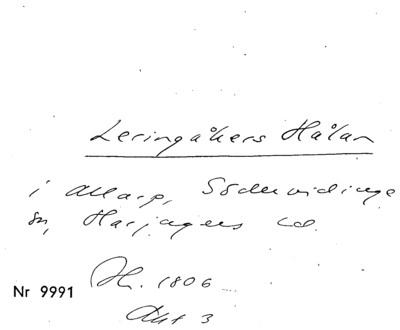 Leringåkers Hålan
i Allarp, Södervidinge
sn, Harjagers hd.
Sk. 1806
Nr 9991
Akt 3